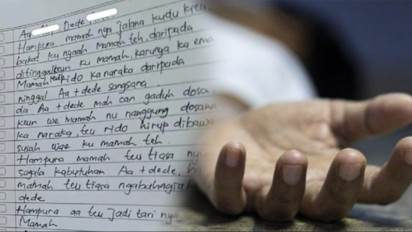 Aa Dede
Hampura mamah nya jalana kudu kieu
ku mamah teh, daripada
ditinggalkeun ku mamah, karunya ka
Mamah rido ka naraka daripada
ninggal Aa + dede sangsara
da Aa + dede mah can gaduh dosa
keun we mamah nu nanggung dosana
ka naraka, teu rido hirup dibawa
susah wae ku mamah teh.
Hampura mamah teu tiasa
sagala kabutuhan Aa + dede,
mamah teu tiasa ngabahagia
dede
Hampura aa teu jadi tari
Mamah